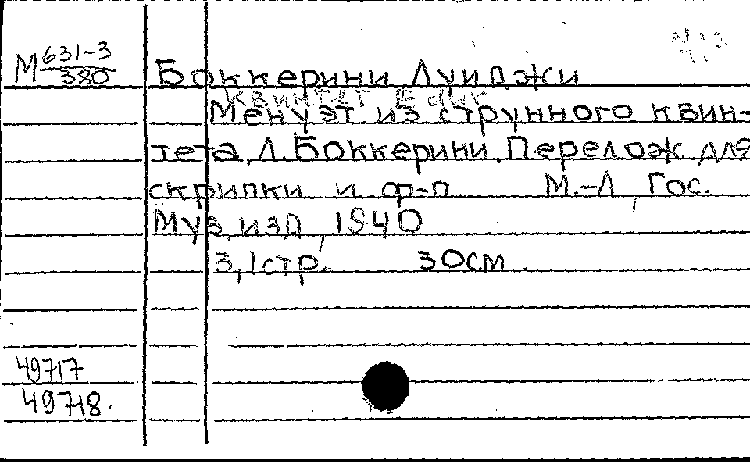 М 631-3
380
Боккерини Луиджи
Квинтет
Менуэт из струнного квин-
тета Л. Боккерини. Перелож для
скрипки и ф-п М.-Л, Гос.
Муз. изд, 1940
3,1стр. 30см
49717
49718.